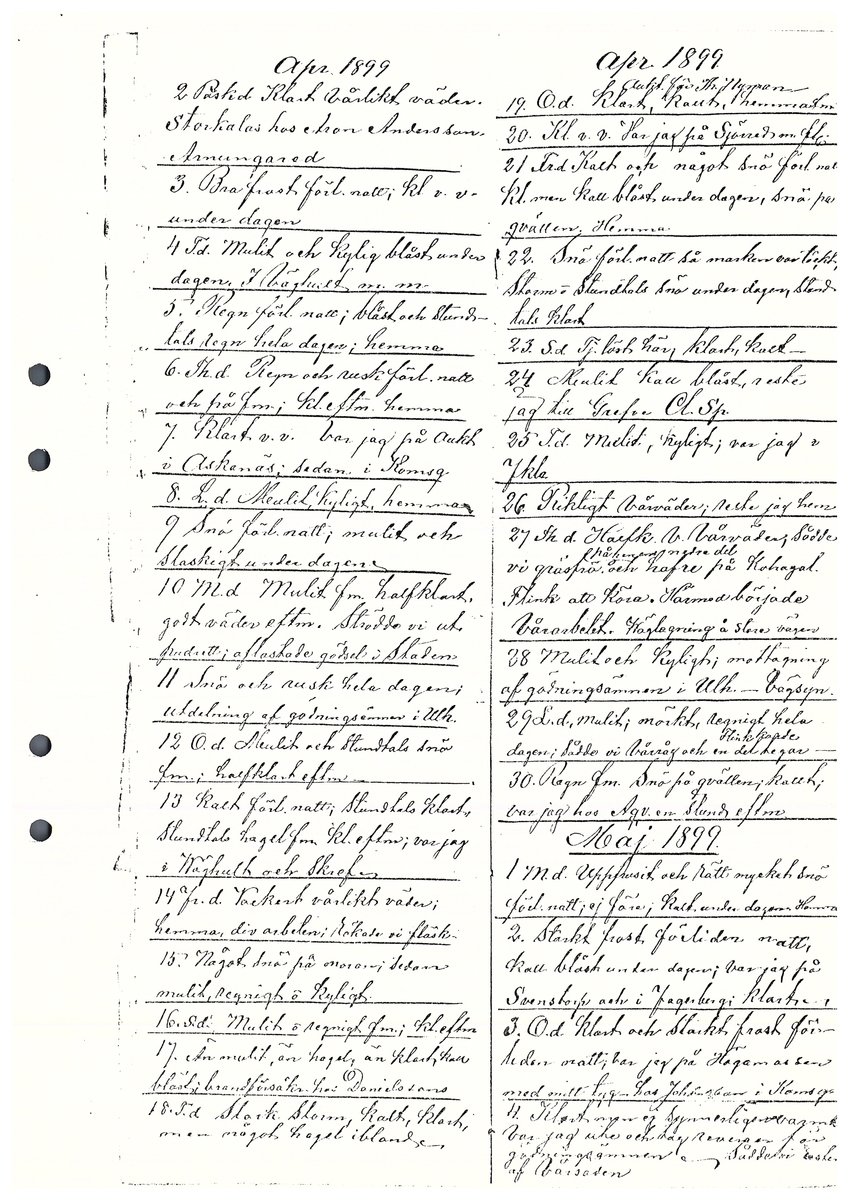 Apr. 1899
2 Påskd Klart Vårlikt väder.
Storkalas hos Aron Andersson.
Arnungarod
3. Bra frost förl. natt; Kl v. v.
under dagen
4 T.d. Mulit och Kylig blåst under
dagen. I Väghult m. m.
5. Regn förl. natt; blåst och stund-
tals regn hela dagen; hemma
6. Th.d Regn och rusk förl. natt
och på fm; Kl. eftm. hemma
7. Klart v.v. Var jag på Aukt
i Askanäs; sedan i Komsg
8. L.d. Mulit, Kyligt, hemma
9 Snö förl. natt; mulit och
slaskigt under dagen
10 M.d Mulit fm. halfklart,
godt väder eftm. Strödde vi ut
pudrett; aflastade gödsel i Staden
11 Snö och rusk hela dagen;
utdelning af gödningsämnen i Ulh.
12 O.d. Mulit och Stundtals snö
fm.; halfklart eftm
13 Kalt förl. natt; Stundtals Klart,
Stundtals hagel fm. Kl. eftm; var jag
i Wäghult och Skref
14 Fr.d. Vackert vårlikt väder;
hemma, div arbeten; Rökade vi fläsk
15. Något snö på moron; sedan
mulit, regnigt o Kyligt.
16. S.d. Mulit o regnigt fm.; Kl. eftm
17. Än mulit, än hagel, än Klart, Kall
blåst; brandförsäkr. hos Danielssons
18. T.d Stark Storm, Kalt, Klart,
men något hagel iblande
Apr. 1899
Aukt. för Th. Nyman
19. O.d. Klart, Kallt, hemma fm
20. Kl. v. v. Var jag på Sjöred m. fl.
21 Frd Kalt och något snö förl. natt
Kl. men Kall blåst under dagen, snö på
qvällen. Hemma.
22. Snö förl. natt så marken var täckt,
Storm o Stundtals snö under dagen, Stund
tals Klart
23. S.d Tj. löst här, Klart, Kalt
24 Mulit Kall blåst, reste
jag till Grefve Cl. Sp.
25 T.d. Mulit, Kyligt; var jag i
26 Riktigt Vårväder; reste jag hem
27 Th d. Halfk. V. Vårväder; Sådde
nedre del
vi gräsfrö och hafre på Kohagal.
Flink att Köra. Härmed började
Vårarbetet. Wäglagning å stora vägen
28 Mulit och Kyligt; mottagning
af gödningsämnen i Ulh. – Vägsyn.
29 L.d. Mulit; mörkt, regnigt hela
Flink körde
dagen; Sådde vi Vårråg och en del hagar
30. Regn fm. Snö på qvällen; Kallt;
var jag hos Agv. en stund eftm.
Maj 1899
1 M.d. Uppfruset och rätt mycket snö
förl. natt; ej före; Kalt under dagen. Hemma
2. Starkt frost förliden natt,
Kall blåst under dagen; var jag på
Svenstorp och i Fagerberg; Klart
3. O.d Klart och starkt frost för-
liden natt; var jag på Högamossen
med mitt tyg hos Johansson i Komsg
4. Klart men ej synnerligen varmt
Var jag ute och tog reverser för
gödningsämnen Sådde vi
af Vårsäden